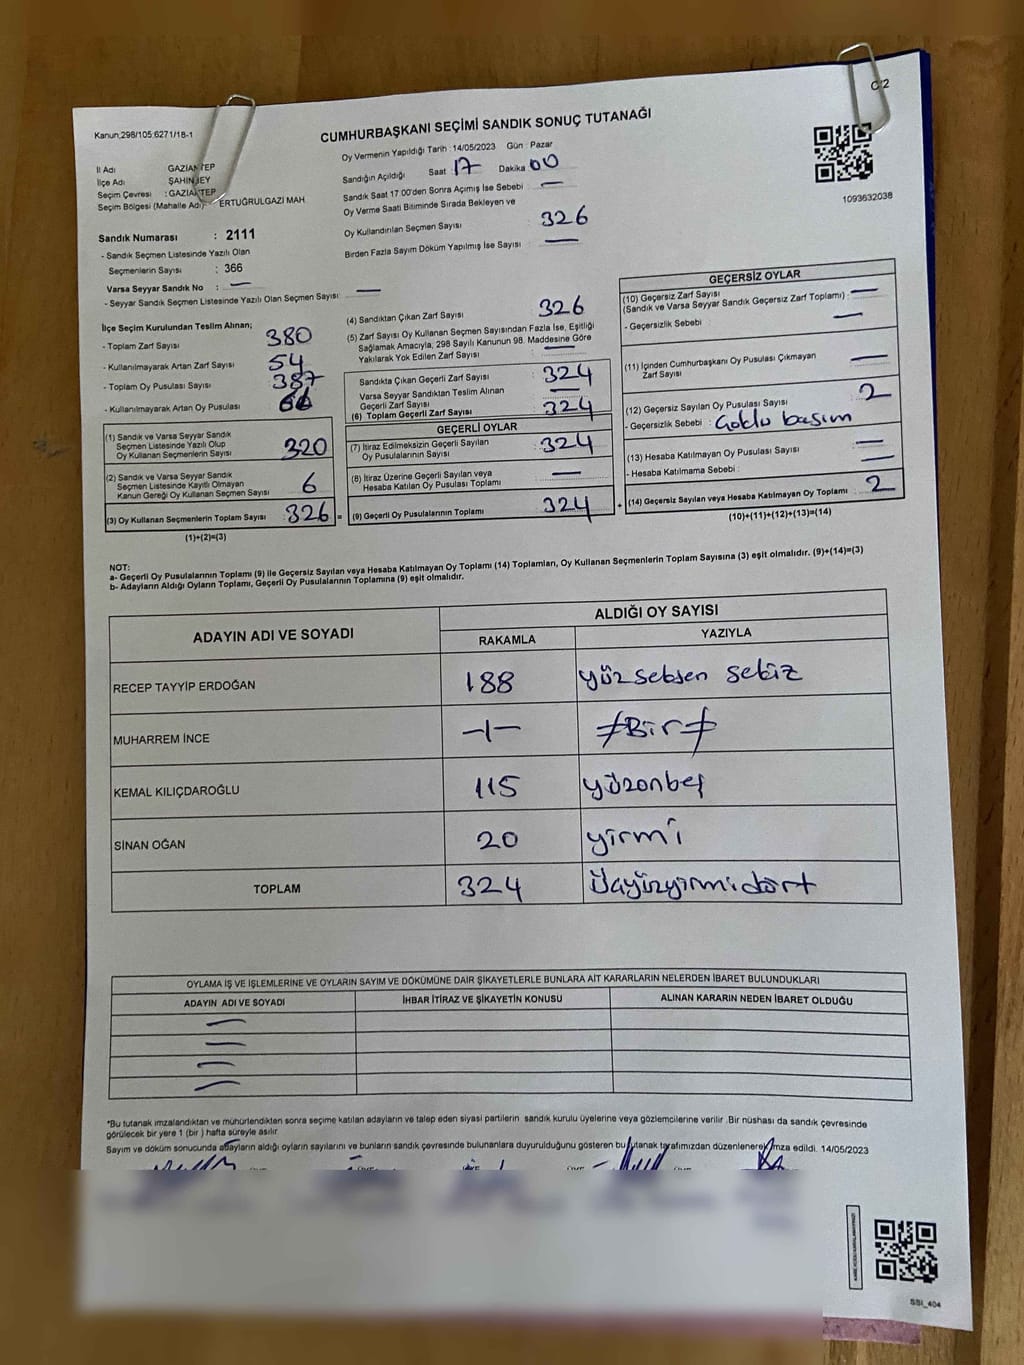 C 2
Kanun;298/105;6271/18-1
CUMHURBAŞKANI SEÇİMİ SANDIK SONUÇ TUTANAĞI
İl Adı GAZİANTEP
İlçe Adı ŞAHİNBEY
Seçim Çevresi : GAZİANTEP
Seçim Bölgesi (Mahalle Adı): ERTUĞRULGAZİ MAH.
Oy Vermenin Yapıldığı Tarih : 14/05/2023 Gün : Pazar
Sandığın Açıldığı Saat : 17 Dakika : 00
Sandık Saat 17.00'den Sonra Açmış İse Sebebi : —
Oy Verme Saati Bitiminde Sırada Bekleyen ve
Oy Kullandırılan Seçmen Sayısı : 326
Birden Fazla Sayım Döküm Yapılmış İse Sayısı : —
1093632038
Sandık Numarası : 2111
- Sandık Seçmen Listesinde Yazılı Olan
Seçmenlerin Sayısı : 366
Varsa Seyyar Sandık No : —
- Seyyar Sandık Seçmen Listesinde Yazılı Olan Seçmen Sayısı: —
İlçe Seçim Kurulundan Teslim Alınan;
- Toplam Zarf Sayısı : 380
- Kullanılmayarak Artan Zarf Sayısı : 54
- Toplam Oy Pusulası Sayısı : 387
- Kullanılmayarak Artan Oy Pusulası :
(1) Sandık ve Varsa Seyyar Sandık
Seçmen Listesinde Yazılı Olup
Oy Kullanan Seçmenlerin Sayısı 320
(2) Sandık ve Varsa Seyyar Sandık
Seçmen Listesinde Kayıtlı Olmayan
Kanun Gereği Oy Kullanan Seçmen Sayısı 6
(3) Oy Kullanan Seçmenlerin Toplam Sayısı 326 =
(1)+(2)=(3)
(4) Sandıktan Çıkan Zarf Sayısı : 326
(5) Zarf Sayısı Oy Kullanan Seçmen Sayısından Fazla İse, Eşitliği
Sağlamak Amacıyla, 298 Sayılı Kanunun 98. Maddesine Göre
Yakılarak Yok Edilen Zarf Sayısı : —
Sandıkta Çıkan Geçerli Zarf Sayısı : 324
Varsa Seyyar Sandıktan Teslim Alınan
Geçerli Zarf Sayısı : —
(6) Toplam Geçerli Zarf Sayısı : 324
GEÇERLİ OYLAR
(7) İtiraz Edilmeksizin Geçerli Sayılan
Oy Pusulasının Sayısı : 324
(8) İtiraz Üzerine Geçerli Sayılan veya
Hesaba Katılan Oy Pusulası Toplamı : —
(9) Geçerli Oy Pusulalarının Toplamı 324 +
GEÇERSİZ OYLAR
(10) Geçersiz Zarf Sayısı
(Sandık ve Varsa Seyyar Sandık Geçersiz Zarf Toplamı) : —
- Geçersizlik Sebebi : —
(11) İçinden Cumhurbaşkanı Oy Pusulası Çıkmayan
Zarf Sayısı : —
(12) Geçersiz Sayılan Oy Pusulası Sayısı : 2
- Geçersizlik Sebebi : Çoklu basım
(13) Hesaba Katılmayan Oy Pusulası Sayısı : —
- Hesaba Katılmama Sebebi : —
(14) Geçersiz Sayılan veya Hesaba Katılmayan Oy Toplamı : 2
(10)+(11)+(12)+(13)=(14)
NOT:
a- Geçerli Oy Pusulalarının Toplamı (9) ile Geçersiz Sayılan veya Hesaba Katılmayan Oy Toplamı (14) Toplamları, Oy Kullanan Seçmenlerin Toplam Sayısına (3) eşit olmalıdır. (9)+(14)=(3)
b- Adayların Aldığı Oyların Toplamı, Geçerli Oy Pusulalarının Toplamına (9) eşit olmalıdır.
ADAYIN ADI VE SOYADI ALDIĞI OY SAYISI
RAKAMLA YAZIYLA
RECEP TAYYİP ERDOĞAN 188 yüzseksen sekiz
MUHARREM İNCE -1- ≠Bir≠
KEMAL KILIÇDAROĞLU 115 yüzonbeş
SİNAN OĞAN 20 yirmi
TOPLAM 324 Üçyüzyirmidört
OYLAMA İŞ VE İŞLEMLERİNE VE OYLARIN SAYIM VE DÖKÜMÜNE DAİR ŞİKAYETLERLE BUNLARA AİT KARARLARIN NELERDEN İBARET BULUNDUKLARI
ADAYIN ADI VE SOYADI İHBAR İTİRAZ VE ŞİKAYETİN KONUSU ALINAN KARARIN NEDEN İBARET OLDUĞU
—
—
—
—
*Bu tutanak imzalandıktan ve mühürlendikten sonra seçime katılan adayların ve talep eden siyasi partilerin sandık kurulu üyelerine veya gözlemcilerine verilir. Bir nüshası da sandık çevresinde
görülecek bir yere 1 (bir) hafta süreyle asılır.
Sayım ve döküm sonucunda adayların aldığı oyların sayılarını ve bunların sandık çevresinde bulunanlara duyurulduğunu gösteren bu tutanak tarafımızdan düzenlenerek imza edildi. 14/05/2023
SSI_404